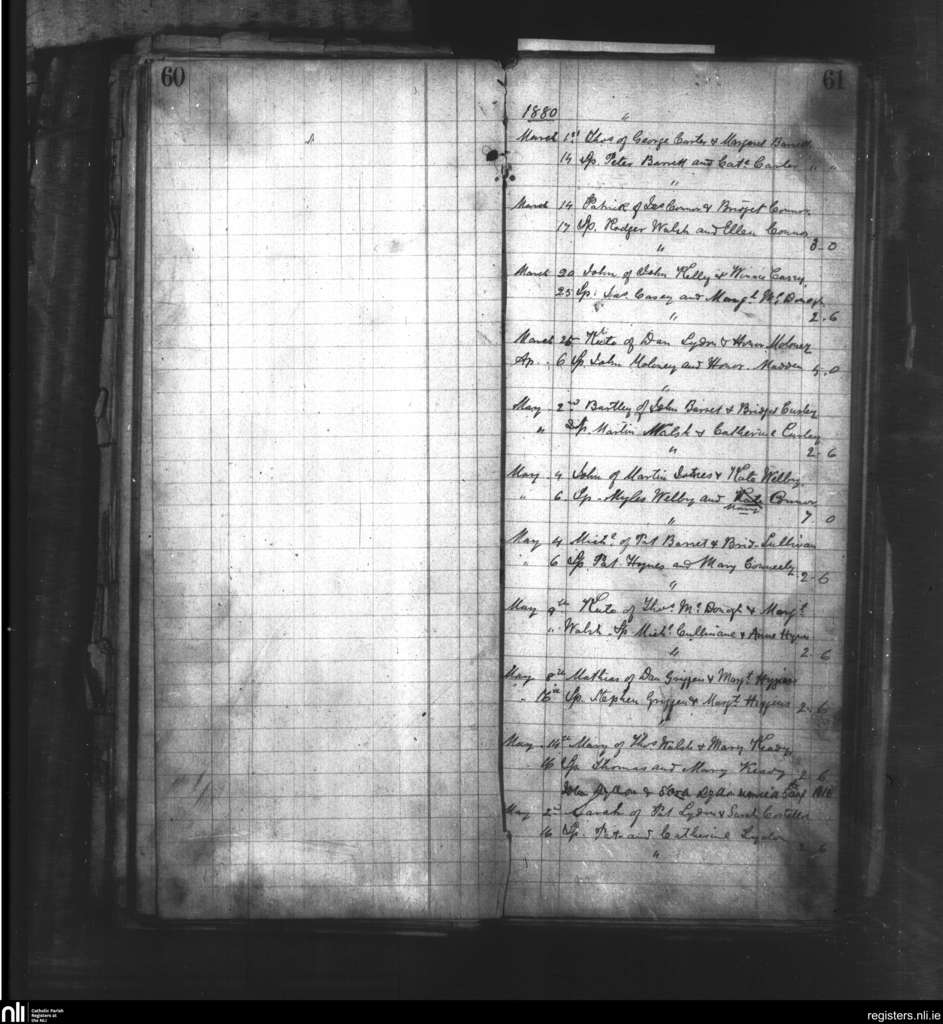 60
61
1880
"
March 1st Thos of George Carter & Margaret Barrett
14 Sp. Peter Barrett and Cathe Carter " "
"
March 14 Patrick of Jas Connor & Bridget Connor
17 Sp. Rodger Walsh and Ellen Connor
3-0
"
March 20 John of John Kelly & Winnie Casey
25 Sp. Jas Casey and Margt McDonogh
2-6
"
March 25 Kate of Dan Lydon & Honor Moloney
Ap. 6 Sp. John Moloney and Honor Madden 5-0
"
May 2nd Bartley of John Barret & Bridget Curley
" Sp. Martin Walsh & Catherine Curley
2-6
"
May 4 John of Martin & Kate Welby
" 6 Sp. Myles Welby and Kate Connor
Mary
7 0
"
May 4 Michl of Pat Barret & Brid. Sullivan
" 6 Sp. Pat Hynes and Mary Conneely
2-6
"
May 9th Kate of Thos McDonogh & Margt
" Walsh Sp. Michl Cullinane & Anne Hynes
" 2 6
May 8th Mathias of Dan Griffin & Margt Higgins
" 16th Sp. Stephen Griffin & Margt Higgins
2-6
May 14th Mary of Thos Walsh & Mary Keady
16 Sp. Thomas and Mary Keady 2 6
John & married
May 2nd Sarah of Pat Lydon & Sarah Costello
16 Sp. and Catherine Lydon
2-6
"
nli
Catholic Parish
Registers at
the NLI
registers.nli.ie